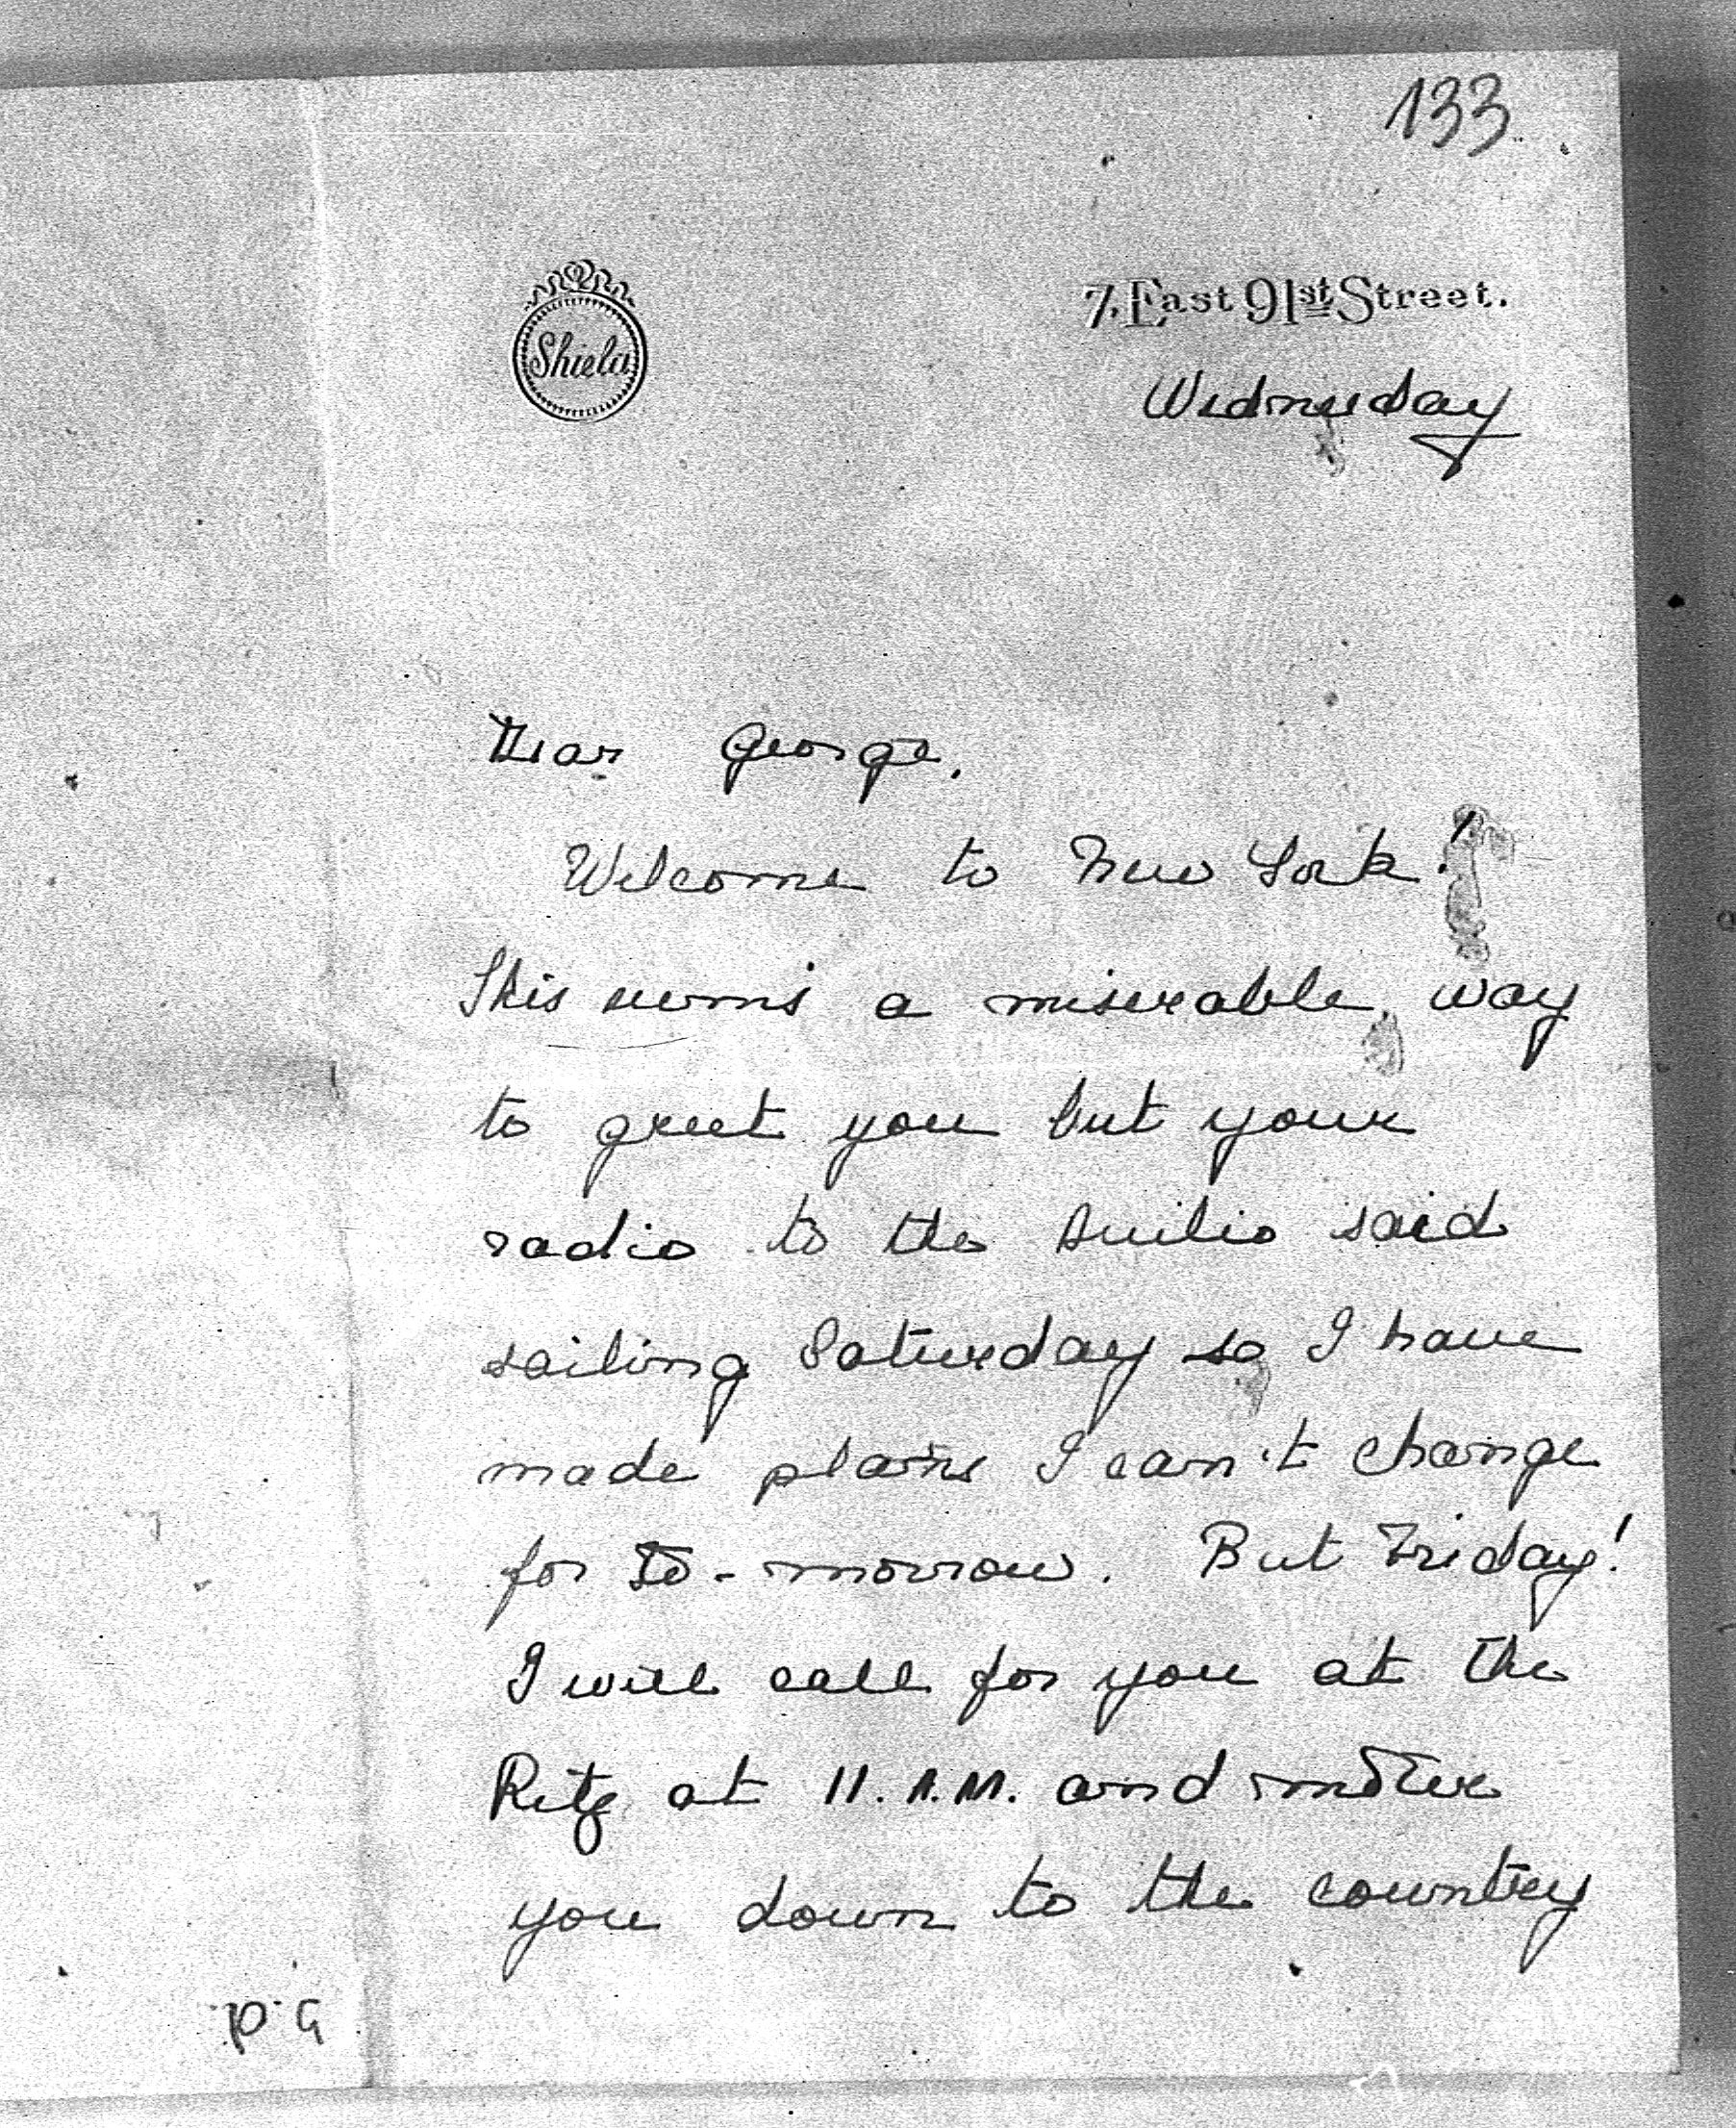 133
Shiela
7. East 91st Street.
Wednesday
Dear George,
Welcome to New York!
This seems a miserable way
to greet you but your
radio to the Duilio said
sailing Saturday so I have
made plans I can't change
for to-morrow. But Friday!
I will call for you at the
Ritz at 11. A.M. and motor
you down to the country